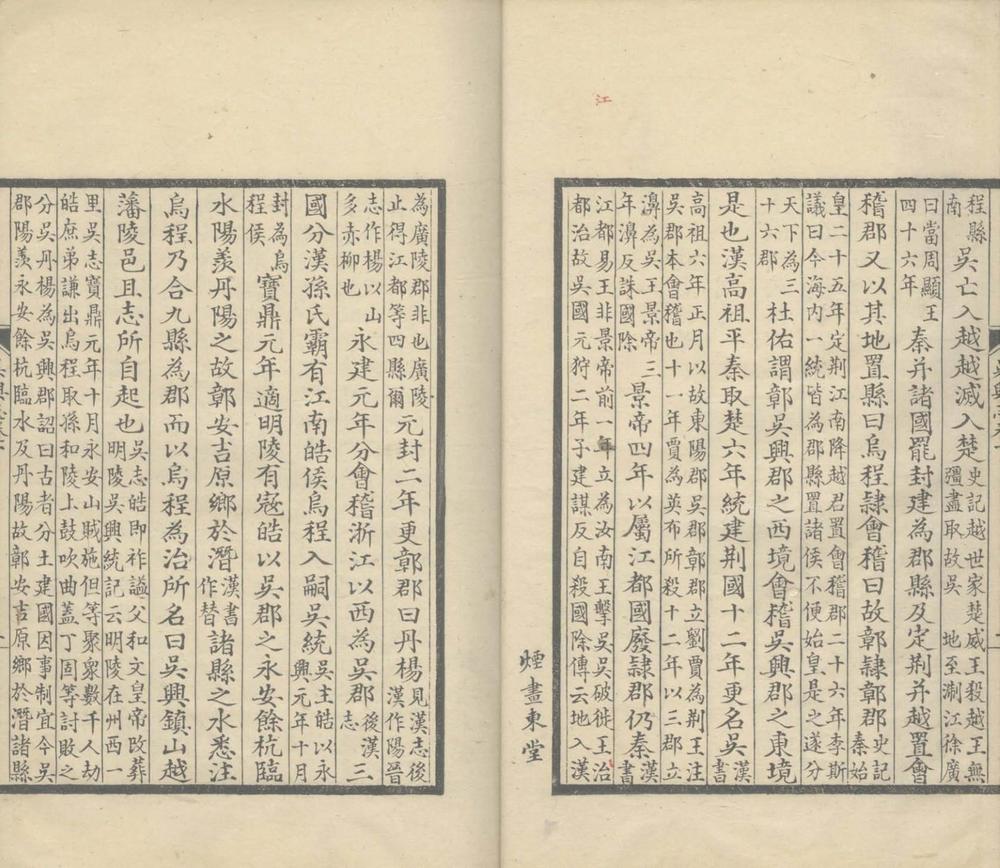 江
程縣南吳亡入越越滅入楚史記越世家楚威王殺越王無彊盡取故吳地至淛江徐廣
曰當周顯王四十六年秦并諸國罷封建為郡縣及定荆并越置會
稽郡又以其地置縣曰烏程隸會稽曰故鄣隸鄣郡史記秦始
皇二十五年定荆江南降越君置會稽郡二十六年李斯
議曰今海内一統皆為郡縣置諸侯不便始皇是之遂分
天下為三十六郡杜佑謂鄣吳興郡之西境會稽吳興郡之東境
是也漢高祖平秦取楚六年統建荆國十二年更名吳漢書
高祖六年正月以故東陽郡吳郡鄣郡立劉賈為荆王注
吳郡本會稽也十一年賈為英布所殺十二年以三郡立
濞為吳王景帝三年濞反誅國除景帝四年以屬江都國廢隸郡仍秦漢書
江都易王非景帝前一年立為汝南王擊吳吳破徙王治
都治故吳國元狩二年子建謀反自殺國除傳云地入漢
煙畫東堂
為廣陵郡非也廣陵止得江都等四縣爾元封二年更鄣郡曰丹楊見漢志後漢作陽晉
志作楊以山多赤柳也永建元年分會稽浙江以西為吳郡後漢志三
國分漢孫氏霸有江南皓侯烏程入嗣吳統吳主皓以永興元年十月
封為烏程侯寶鼎元年適明陵有寇皓以吳郡之永安餘杭臨
水陽羨丹陽之故鄣安吉原鄉於潛漢書作替諸縣之水悉注
烏程乃合九縣為郡而以烏程為治所名曰吳興鎮山越
藩陵邑且志所自起也吳志皓即祚謚父和文皇帝改葬明陵吳興統記云明陵在州西一
里吳志寶鼎元年十月永安山賊施但等聚眾數千人劫
皓庶弟謙出烏程取孫和陵上鼓吹曲蓋丁固等討敗之
分吳丹楊為吳興郡詔曰古者分土建國因事制宜今吳
郡陽羨永安餘杭臨水及丹陽故鄣安吉原鄉於潛諸縣